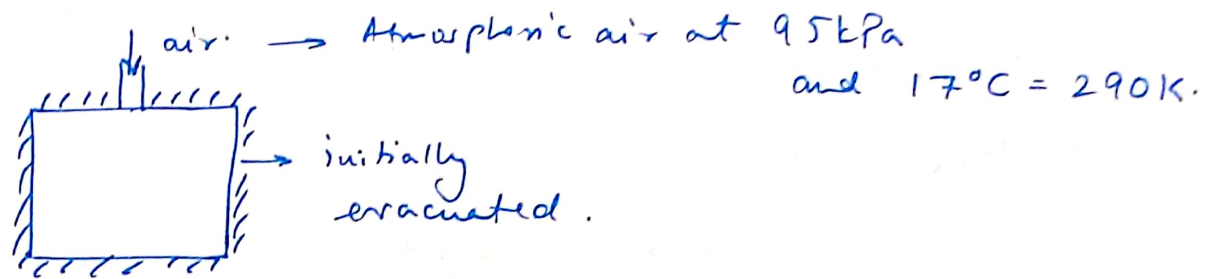 air. → Atmospheric air at 95kPa
and 17°C = 290K.
→ initially
evacuated.